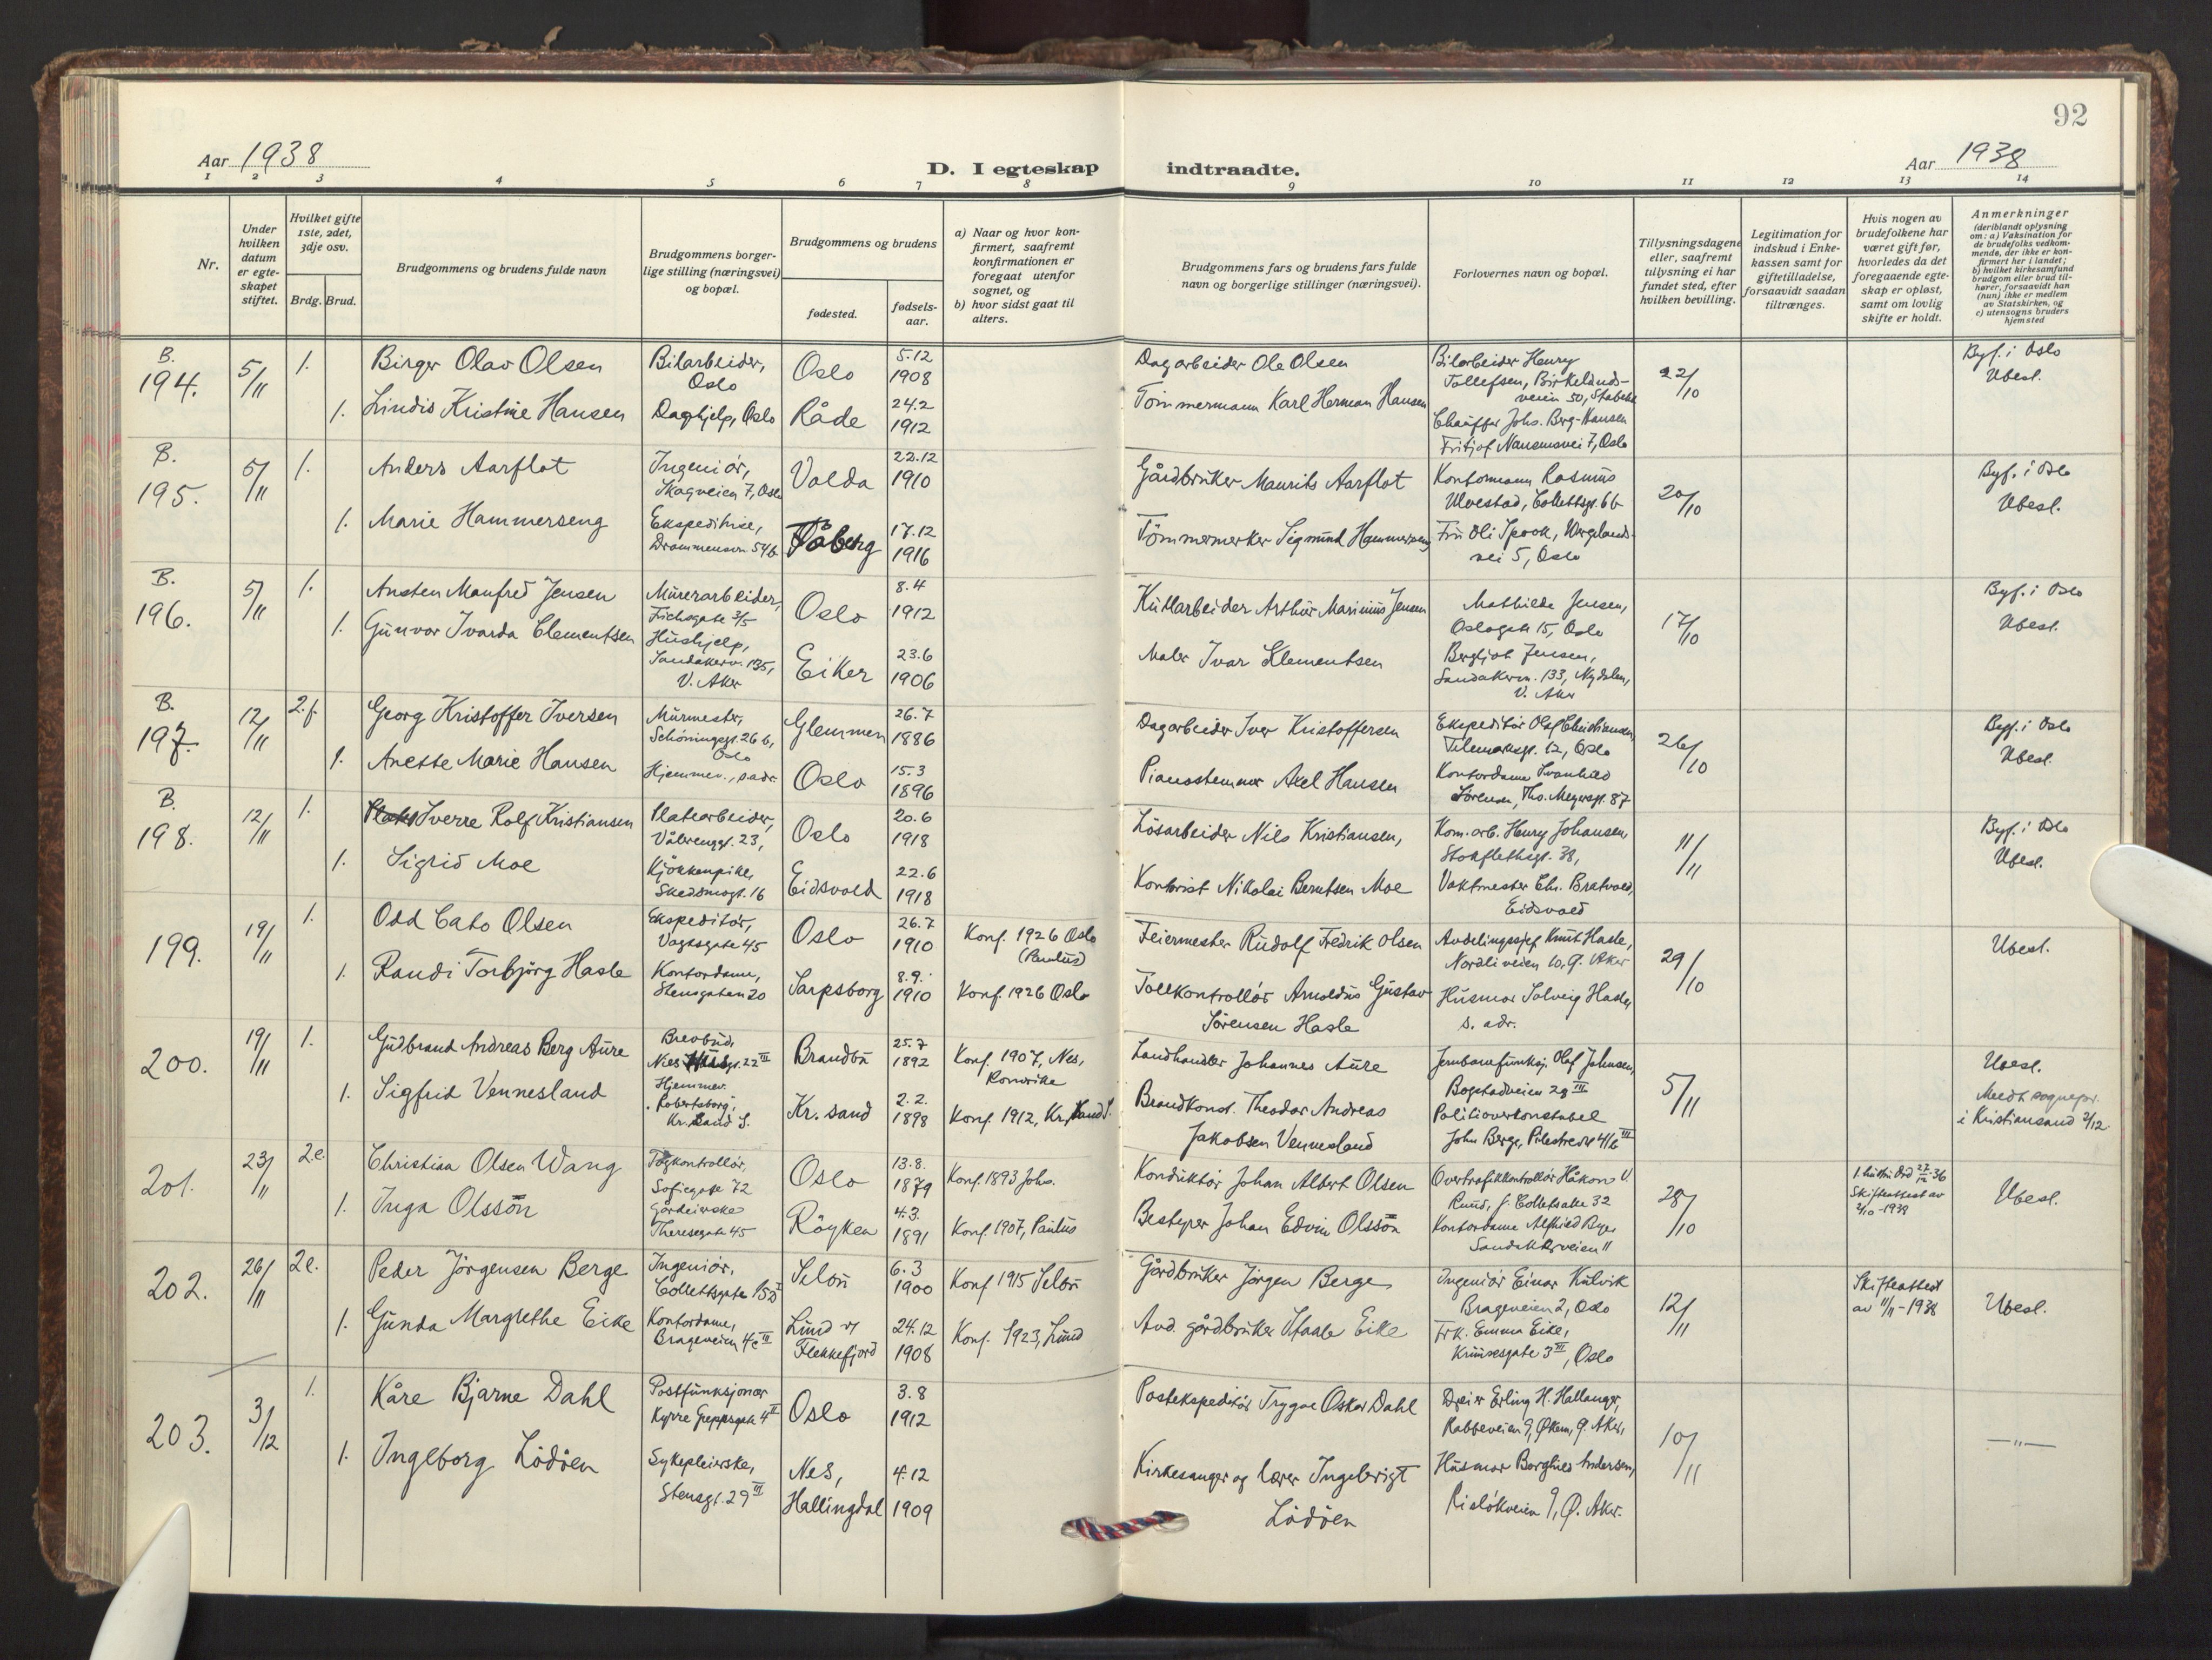 92
Aar 1938
D. I egteskap indtraadte.
Aar 1938
1 2 3 4 5 6 7 8 9 10 11 12 13 14
Nr.
Under hvilken datum er egte-skapet stiftet.
Hvilket gifte 1ste, 2det, 3dje osv.
Brdg. Brud.
Brudgommens og brudens fulde navn
Brudgommens borger-lige stilling (næringsvei) og bopæl.
Brudgommens og brudens
fødested.
fødsels-aar.
a) Naar og hvor kon-firmert, saafremt konfirmationen er foregaat utenfor sognet, og
b) hvor sidst gaat til alters.
Brudgommens fars og brudens fars fulde navn og borgerlige stillinger (næringsvei).
Forlovernes navn og bopæl.
Tillysningsdagene eller, saafremt tillysning ei har fundet sted, efter hvilken bevilling.
Legitimation for indskud i Enke-kassen samt for giftetilladelse, forsaavidt saadan tiltrænges.
Hvis nogen av brudefolkene har været gift før, hvorledes da det foregaaende egte-skap er opløst, samt om lovlig skifte er holdt.
Anmerkninger (deriblandt oplysning om: a) Vaksination for de brudefolks vedkom-mende, der ikke er kon-firmert her i landet; b) hvilket kirkesamfund brudgom eller brud til-hører, forsaavidt han (hun) ikke er medlem av Statskirken, og c) utensogns bruders hjemsted
B. 194. 5/11 1. Birger Olav Olsen Bilarbeider, Oslo Oslo 5.12 1908
Dagarbeider Ole Olsen
Bilarbeider Henry Tollefsen, Birkelunds-veien 50, Stabekk
22/10
Byf. i Oslo
Ubesl.
1. Lindis Kristine Hansen Daghjelp, Oslo Råde 24.2 1912
Tömmermann Karl Herman Hansen
Chauffør Johs. Berg-Hansen Fritjof Nansensvei 7, Oslo
B. 195. 5/11 1. Anders Aarflot Ingeniör, Skagveien 7, Oslo Volda 22.12 1910
Gårdbruker Maurits Aarflot
Kontormann Rasmus Ulvestad, Collettsgt. 66
20/10
Byf. i Oslo
Ubesl.
1. Marie Hammerseng Ekspeditrise, Drammensvn 54b Fåberg 17.12 1916
Tömmermerker Sigmund Hammerseng
Fru Oli Spook, Wergelands-vei 5, Oslo
B. 196. 5/11 1. Austen Manfred Jensen Murerarbeider, Oslo 8.4 1912
Kullarbeider Arthur Marinius Jensen
Mathilde Jensen, Oslogata 15, Oslo
17/10
Byf. i Oslo
Ubesl.
1. Gunvor Ivarda Clementsen Hushjelp, Sandakerv. 135, V. Aker Eiker 23.6 1906
Maler Ivar Klementsen
Bergljot Jensen, Sandakervn. 133, Nydalen, V. Aker
B. 197. 12/11 2.f. Georg Kristoffer Iversen Murmester, Schöningsgt. 26b, Oslo Glemmen 26.7 1886
Dagarbeider Iver Kristoffersen
Ekspeditör Olaf Christiansen, Telemarksgt. 12, Oslo
26/10
Byf. i Oslo
Ubesl.
1. Anette Marie Hansen Hjemmev., s. adr. Oslo 15.3 1896
Pianostemmer Axel Hansen
Kontordame Svanhild Sörensen, Tho. Meyersgt. 87
B. 198. 12/11 1. Sverre Rolf Kristiansen Platearbeider, Vålerenggt. 23, Oslo 20.6 1918
Lösarbeider Nils Kristiansen,
Kom. arb. Henry Johansen, Stokflethsgt. 38,
11/11
Byf. i Oslo
Ubesl.
1. Sigrid Moe Kjökkenpike, Skedsmogt. 16 Eidsvold 22.6 1918
Kontorist Nikolai Berntsen Moe
Vaktmester Chr. Bratvold, Eidsvold
199. 19/11 1. Odd Cato Olsen Ekspeditör, Vogtsgate 45 Oslo 26.7 1910 Konf. 1926 Oslo (Paulus)
Feiermester Rudolf Fredrik Olsen
Avdelingssjef Knut Hasle, Nordliveien 10, Ø. Aker
29/10
Ubesl.
1. Randi Torbjörg Hasle Kontordame, Stensgaten 20 Sarpsborg 8.9. 1910 Konf. 1926 Oslo
Tollkontrollör Arnoldus Gustav Sörensen Hasle
Husmor Solveig Hasle, s. adr.
200. 19/11 1. Gudbrand Andreas Berg Aure Brevbud, 22 III Brandbu 25.7 1892 Konf. 1907, Nes, Romerike
Landhandler Johannes Aure
Jernbanefunksj. Olaf Johnsen, Bogstadveien 28 III
5/11
Ubesl.
1. Sigfrid Vennesland Hjemmev. Robertsborg, Kr.sand S. Kr. sand 2.2. 1898 Konf. 1912, Kr.sand S.
Brandkonst. Theodor Andreas Jakobsen Vennesland
Politioverkonstabel John Berge, Pilestredet 41b III
Medt. sognepr. i Kristiansand 2/12.
201. 23/11 2.e. Christian Olsen Wang Togkontrollör, Sofiegate 72 Oslo 13.8. 1879 Konf. 1893 Johs.
Konduktör Johan Albert Olsen
Overtrafikkontrollör Håkon V. Ruud, J. Collettsalle 32
28/10
1. hustru död 27/12-36
Skifteattest av 2/10-1938
Ubesl.
1. Inga Olsson Theresegate 45 Röyken 4.3. 1891 Konf. 1907, Paulus
Bestyrer Johan Edvin Olsson
Kontordame Alfhild Sandakerveien 11
202. 26/11 2e. Peder Jörgensen Berge Ingeniör, Collettsgate Selöu 6.3 1900 Konf 1915 Selöu
Gårdbruker Jörgen Berge
Ingeniör Einar Kulvik Brageveien 2, Oslo
12/11
Skifteattest av 11/11-1938
Ubesl.
1. Gunda Margrethe Eike Kontordame, Brageveien 4c III Lund v/ Flekkefjord 24.12 1908 Konf. 1923, Lund
Avd. gårdbruker Staale Eike
Frk. Emma Eike, Krusesgate 3 III, Oslo
203. 3/12 1. Kåre Bjarne Dahl Postfunksjonær Kyrre Greppsgate 4 II Oslo 3.8 1912
Postekspeditör Trygve Oskar Dahl
Dreier Erling H. Hallanger, Rabbeveien 9, Økern, Ø. Aker,
10/11
—"—
1. Ingeborg Lödöen Sykepleierske, Stensgt. 29 III Nes, Hallingdal 4.12 1909
Kirkesanger og lærer Ingebrigt Lödöen
Husmor Borghild Andersen, Risløkveien 9, Ø. Aker.